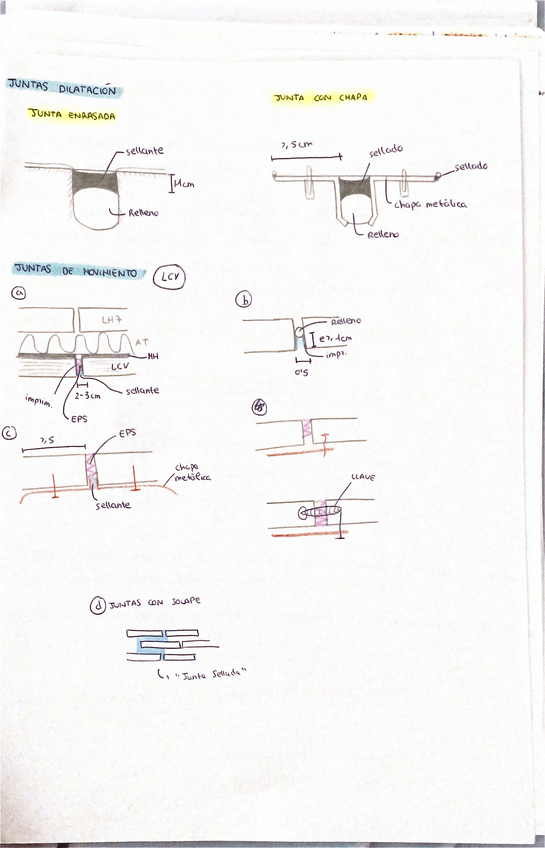 JUNTAS DILATACIÓN
JUNTA ENRASADA
JUNTA CON CHAPA
sellante
1cm
Relleno
7,5cm
sellado
sellado
chapa metálica
Relleno
JUNTAS DE MOVIMIENTO LCV
a
LH7
AT
MH
LCV
imprim.
2-3cm
sellante
EPS
b
Relleno
e>,1cm
impr.
0'5
c
7,5
EPS
chapa
metálica
sellante
LLAVE
d JUNTAS CON SOLAPE
"Junta Sellada"